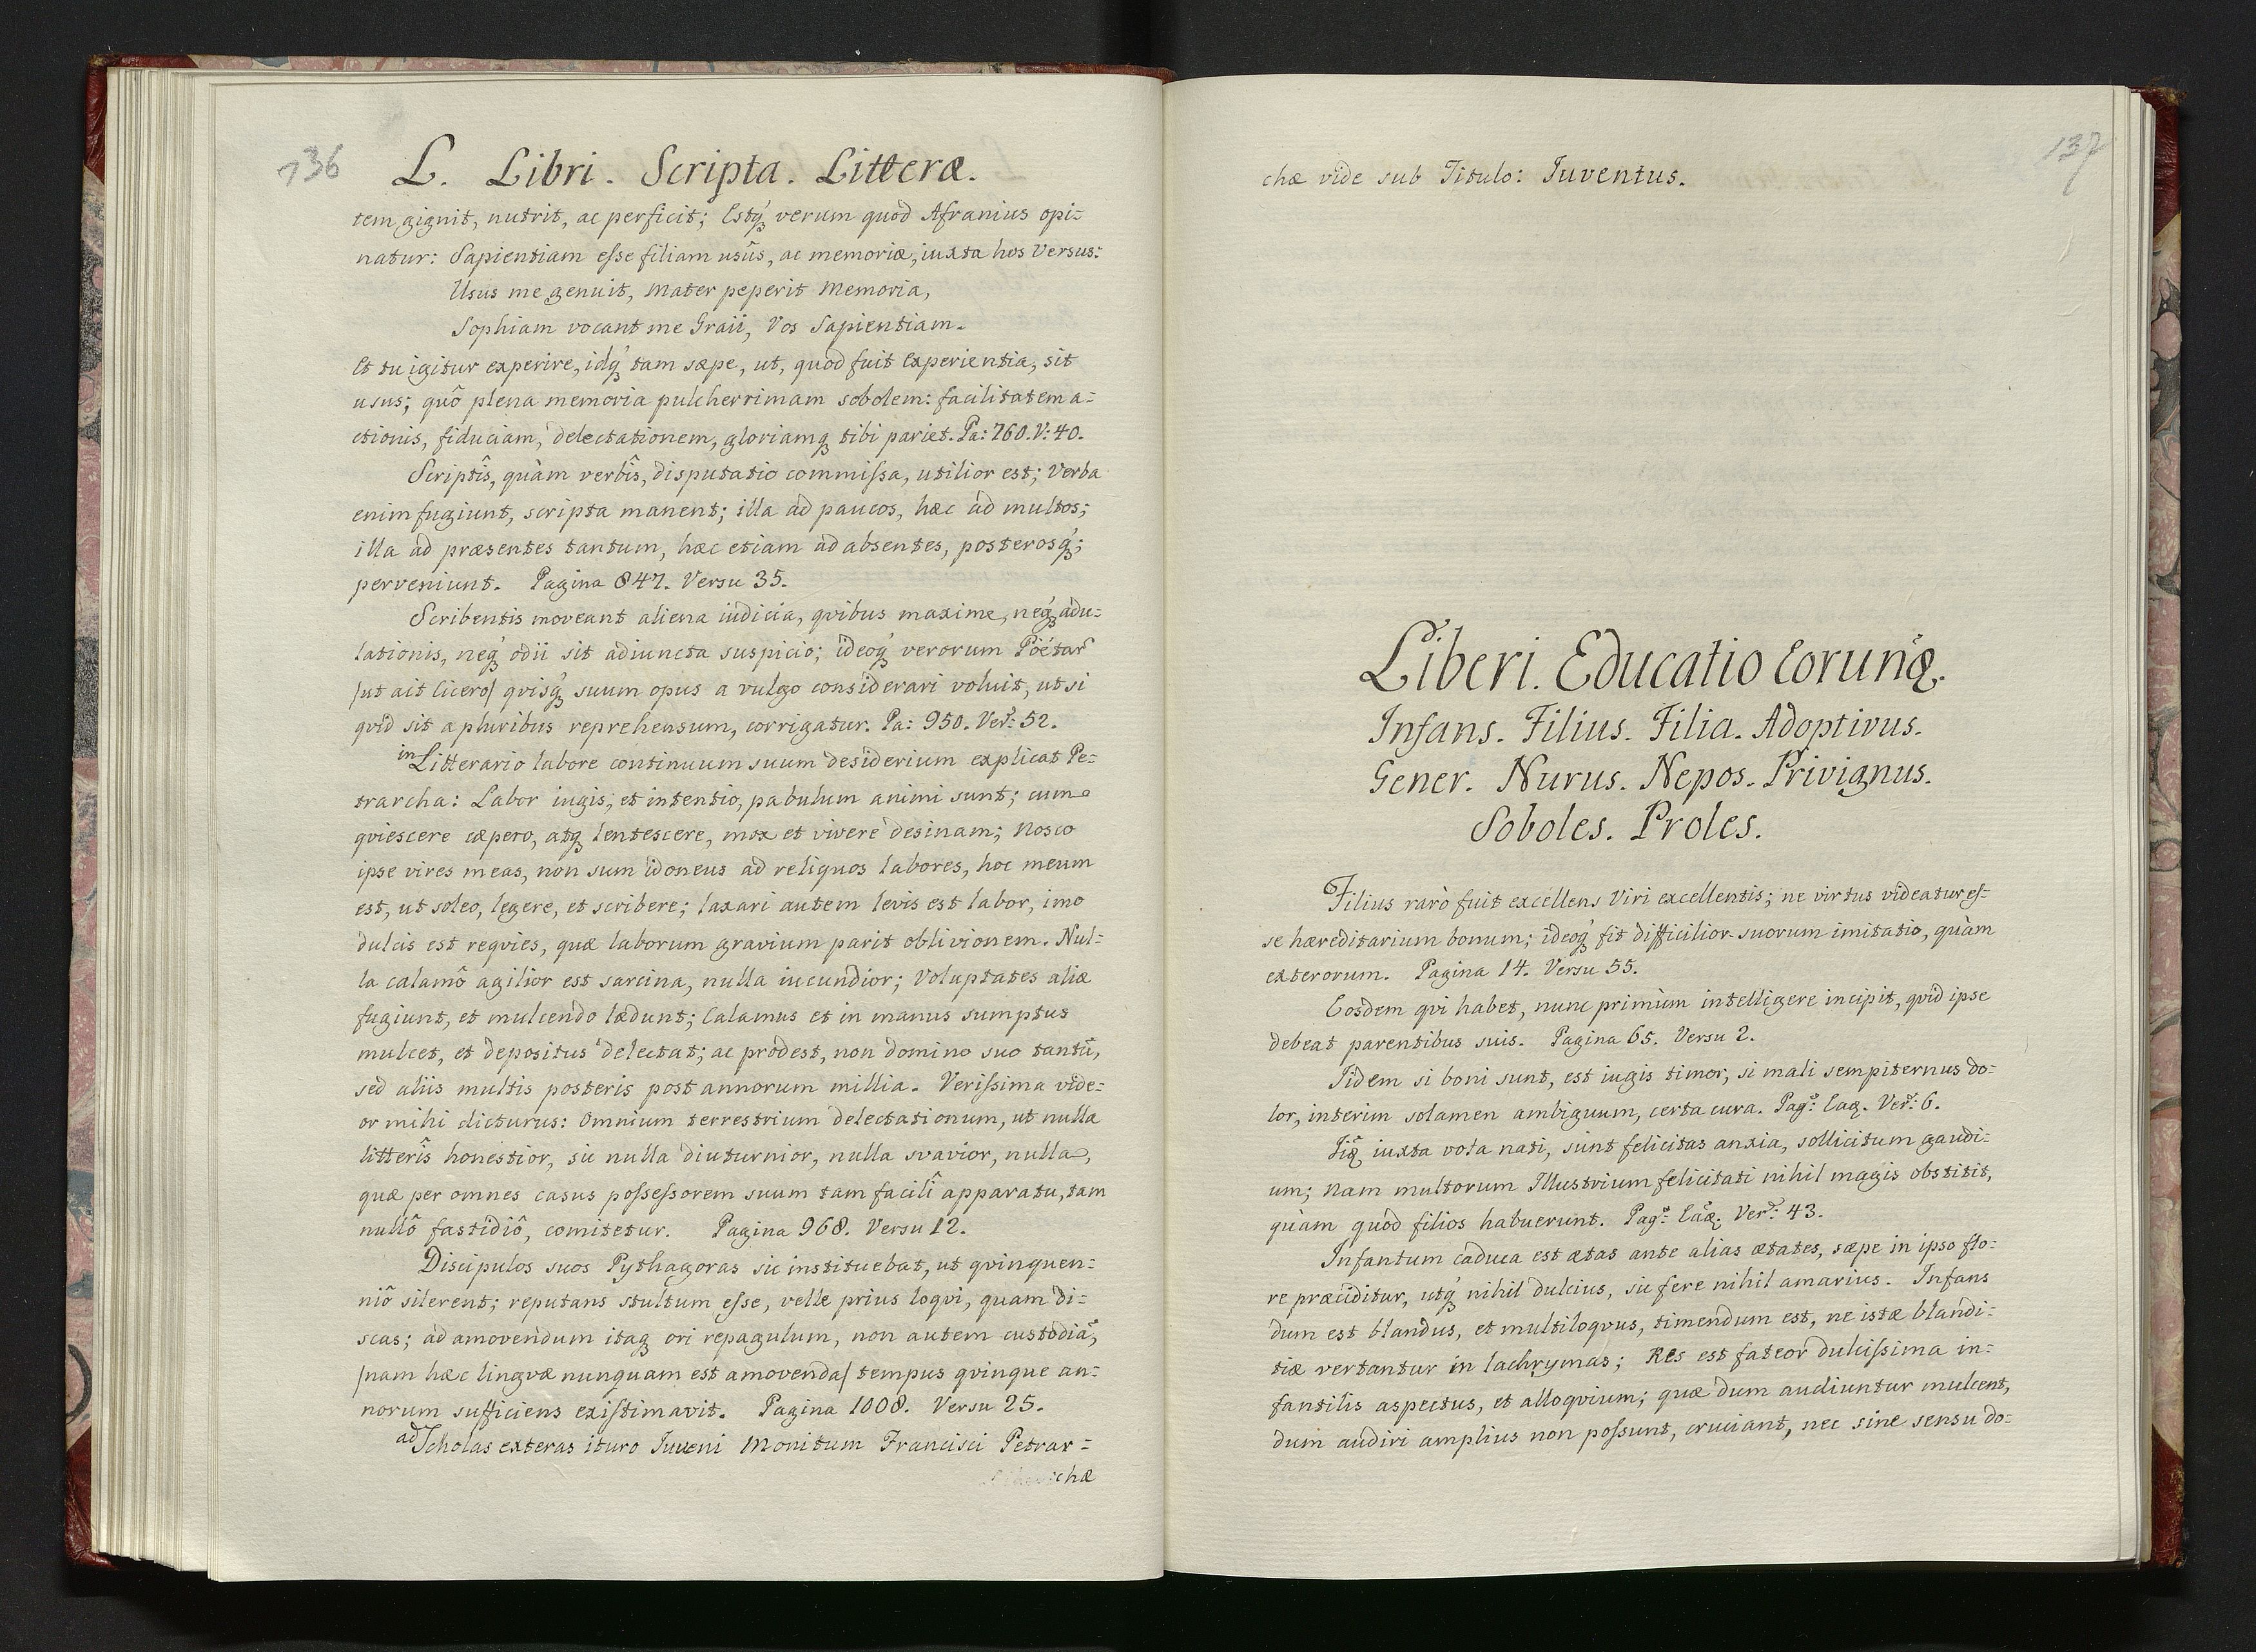 136
L. Libri. Scripta. Litteræ.
tem gignit, nutrit, ac perficit; Estq́ꝫ verum quod Afranius opi=
natur: Sapientiam eſse filiam usûs, ac memoriæ, iuxta hos Versus:
Usus me genuit, Mater peperit Memoria,
Sophiam vocant me Graii, Vos Sapientiam.
Et tu igitur experire, idq́ꝫ tam sæpe, ut, quod fuit Experientia, sit
usus; quô plena memoria pulcherrimam sobolem: facilitatem a=
ctionis, fiduciam, delectationem, gloriamqꝫ tibi pariet. Pa: 760. V: 40.
Scriptîs, quàm verbîs, disputatio commiſsa, utilior est; Verba
enim fugiunt, scripta manent; illa ad paucos, hæc ad multos;
illa ad præsentes tantum, hæc etiam ad absentes, posterosq́ꝫ;
perveniunt. Pagina 847. Versu 35.
Scribentis moveant aliena iudicia, qvibus maxime, neq́ꝫ adu=
lationis, neq́ꝫ odii sit adiuncta suspicio; ideoq́ꝫ verorum Poëtar̃
/ut ait Cicero/ qvisq́ꝫ suum opus a vulgo considerari voluit, ut si
qvid sit a pluribus reprehensum, corrigatur. Pa: 950. Ver: 52.
in Litterario labore continuum suum desiderium explicat Pe=
trarcha: Labor iugis, et intentio, pabulum animi sunt; cum
qviescere cæpero, atqꝫ lentescere, mox et vivere desinam; Nosco
ipse vires meas, non sum idoneus ad reliquos labores, hoc meum
est, ut soleo, legere, et scribere; laxari autem levis est labor, imo
dulcis est reqvies, quæ laborum gravium parit oblivionem. Nul=
la calamô agilior est sarcina, nulla iucundior; Voluptates aliæ
fugiunt, et mulcendo lædunt; Calamus et in manus sumptus
mulcet, et depositus delectat; ac prodest, non domino suo tantũ,
sed aliis multis posteris post annorum millia. Veriſsima vide=
or mihi dicturus: Omnium terrestrium delectationum, ut nulla
litterîs honestior, sic nulla diuturnior, nulla svavior, nulla,
quæ per omnes casus poſseſsorem suum tam facilî apparatu, tam
nullô fastidiô, comitetur. Pagina 968. Versu 12.
Discipulos suos Pythagoras sic instituebat, ut qvinquen=
niô silerent; reputans stultum eſse, velle prius loqvi, quam di=
scas; ad amovendum itaqꝫ ori repagulum, non autem custodiã,
/nam hæc lingvæ nunquam est amovenda/ tempus qvinque an=
norum sufficiens exiſtimavit. Pagina 1008. Versu 25.
ad Scholas exteras ituro Iuveni Monitum Francisci Petrar=
chæ
137
chæ vide sub Titulo: Iuventus.
Liberi. Educatio Eorumq́ꝫ.
Infans. Filius. Filia. Adoptivus.
Gener. Nurus. Nepos. Privignus.
Soboles. Proles.
Filius rarò fuit excellens Viri excellentis; ne virtus videatur eſ=
se hæreditarium bonum; ideoq́ꝫ fit difficilior suorum imitatio, quàm
exterorum. Pagina 14. Versu 55.
Eosdem qvi habet, nunc primùm intelligere incipit, qvid ipse
debeat parentibus suis. Pagina 65. Versu 2.
Iidem si boni sunt, est iugis timor, si mali sempiternus do=
lor, interim solamen ambiguum, certa cura. Pag: Eaq. Ver: 6.
Iiq́ꝫ iuxta vota nati, sunt felicitas anxia, sollicitum gaudi=
um; Nam multorum Illustrium felicitati nihil magis obstitit,
quàm quod filios habuerunt. Pag: Eaq. Ver: 43.
Infantum caduca est ætas ante alias ætates, sæpe in ipso flo=
re præciditur, utq́ꝫ nihil dulcius, sic fere nihil amarius. Infans
dum est blandus, et multiloqvus, timendum est, ne istæ blandi=
tiæ vertantur in lachrymas; Res est fateor dulciſsima in=
fantilis aspectus, et alloqvium; quæ dum audiuntur mulcent,
dum audiri amplius non poſsunt, cruciant, nec sine sensu do=